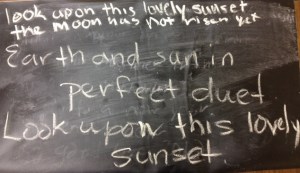 look upon this lovely sunset
the moon has not risen yet
Earth and sun in
perfect duet
Look upon this lovely
sunset.